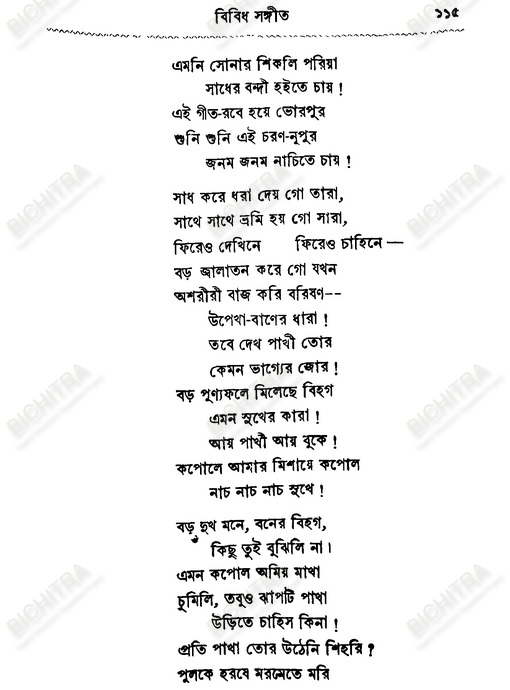 বিবিধ সঙ্গীত ১১৫
এমনি সোনার শিকলি পরিয়া
সাধের বন্দী হইতে চায় !
এই গীত-রবে হয়ে ভোরপুর
শুনি শুনি এই চরণ-নূপুর
জনম জনম নাচিতে চায় !
সাধ করে ধরা দেয় গো তারা,
সাথে সাথে ভ্রমি হয় গো সারা,
ফিরেও দেখিনে ফিরেও চাহিনে —
বড় জ্বালাতন করে গো যখন
অশরীরী বাজ করি বরিষণ--
উপেখা-বাণের ধারা !
তবে দেখ পাখী তোর
কেমন ভাগ্যের জোর !
বড় পুণ্যফলে মিলেছে বিহগ
এমন সুখের কারা !
আয় পাখী আয় বুকে !
কপোলে আমার মিশায়ে কপোল
নাচ নাচ নাচ সুখে !
বড় দুখ মনে, বনের বিহগ,
কিছু তুই বুঝিলি না।
এমন কপোল অমিয় মাখা
চুমিলি, তবুও ঝাপটি পাখা
উড়িতে চাহিস কিনা !
প্রতি পাখা তোর উঠেনি শিহরি ?
পুলকে হরষে মরমেতে মরি
BICHITRA
BICHITRA
BICHITRA
BICHITRA
BICHITRA
BICHITRA
BICHITRA
BICHITRA
BICHITRA
BICHITRA
BICHITRA
BICHITRA